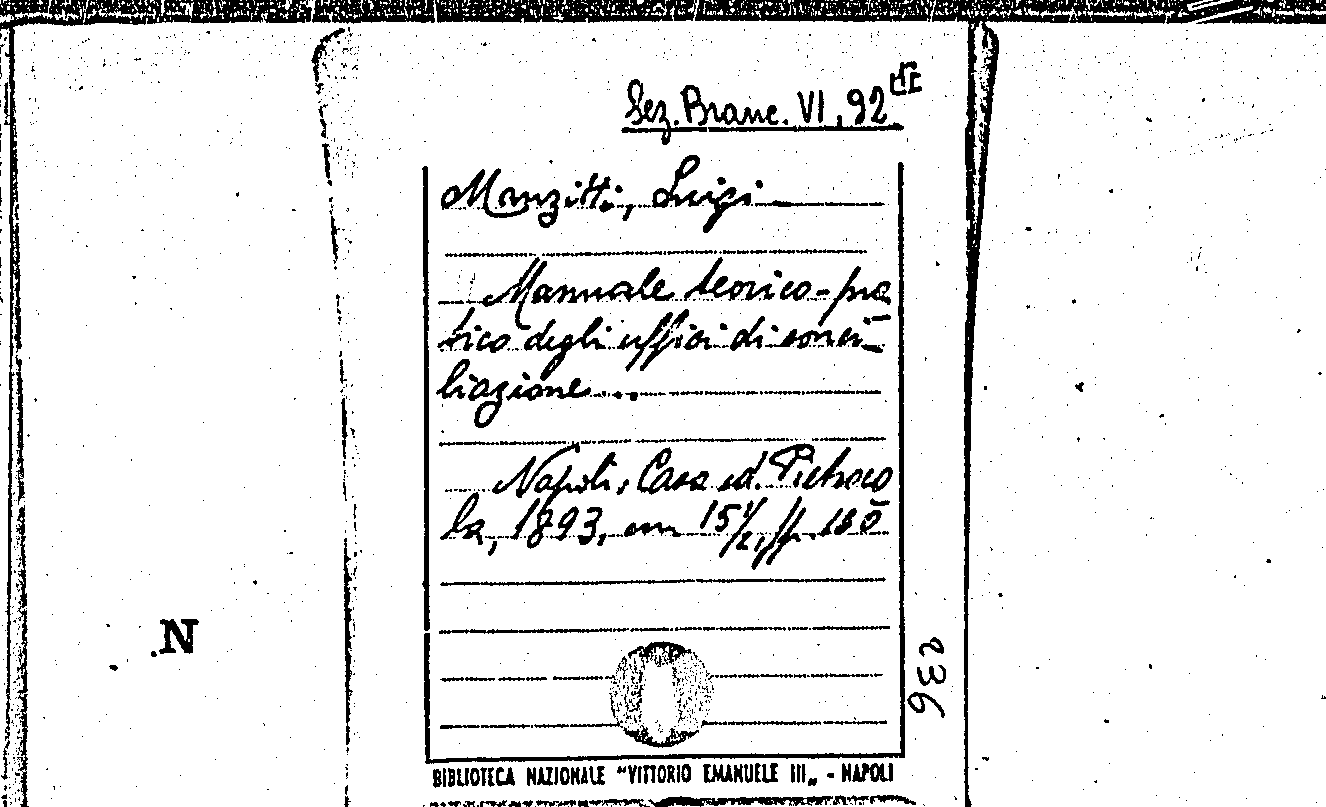 Sez. Branc. VI, 92
Manzitti, Luigi
Manuale teorico-pra
tico degli uffici di conci-
liazione...
Napoli, Casa ed. Pietroco
la, 1893, cm 15½, pp. 180
N
236
BIBLIOTECA NAZIONALE "VITTORIO EMANUELE III„ - NAPOLI